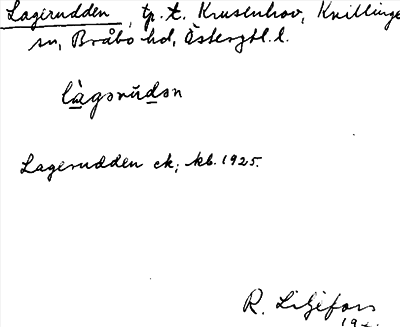 Lagerudden, tp. t. Krusenhov, Kvillinge
sn, Bråbo hd, Östergtl. l.
làgərùdən
Lagerudden ek; kb. 1925.
R. Liljefors
19